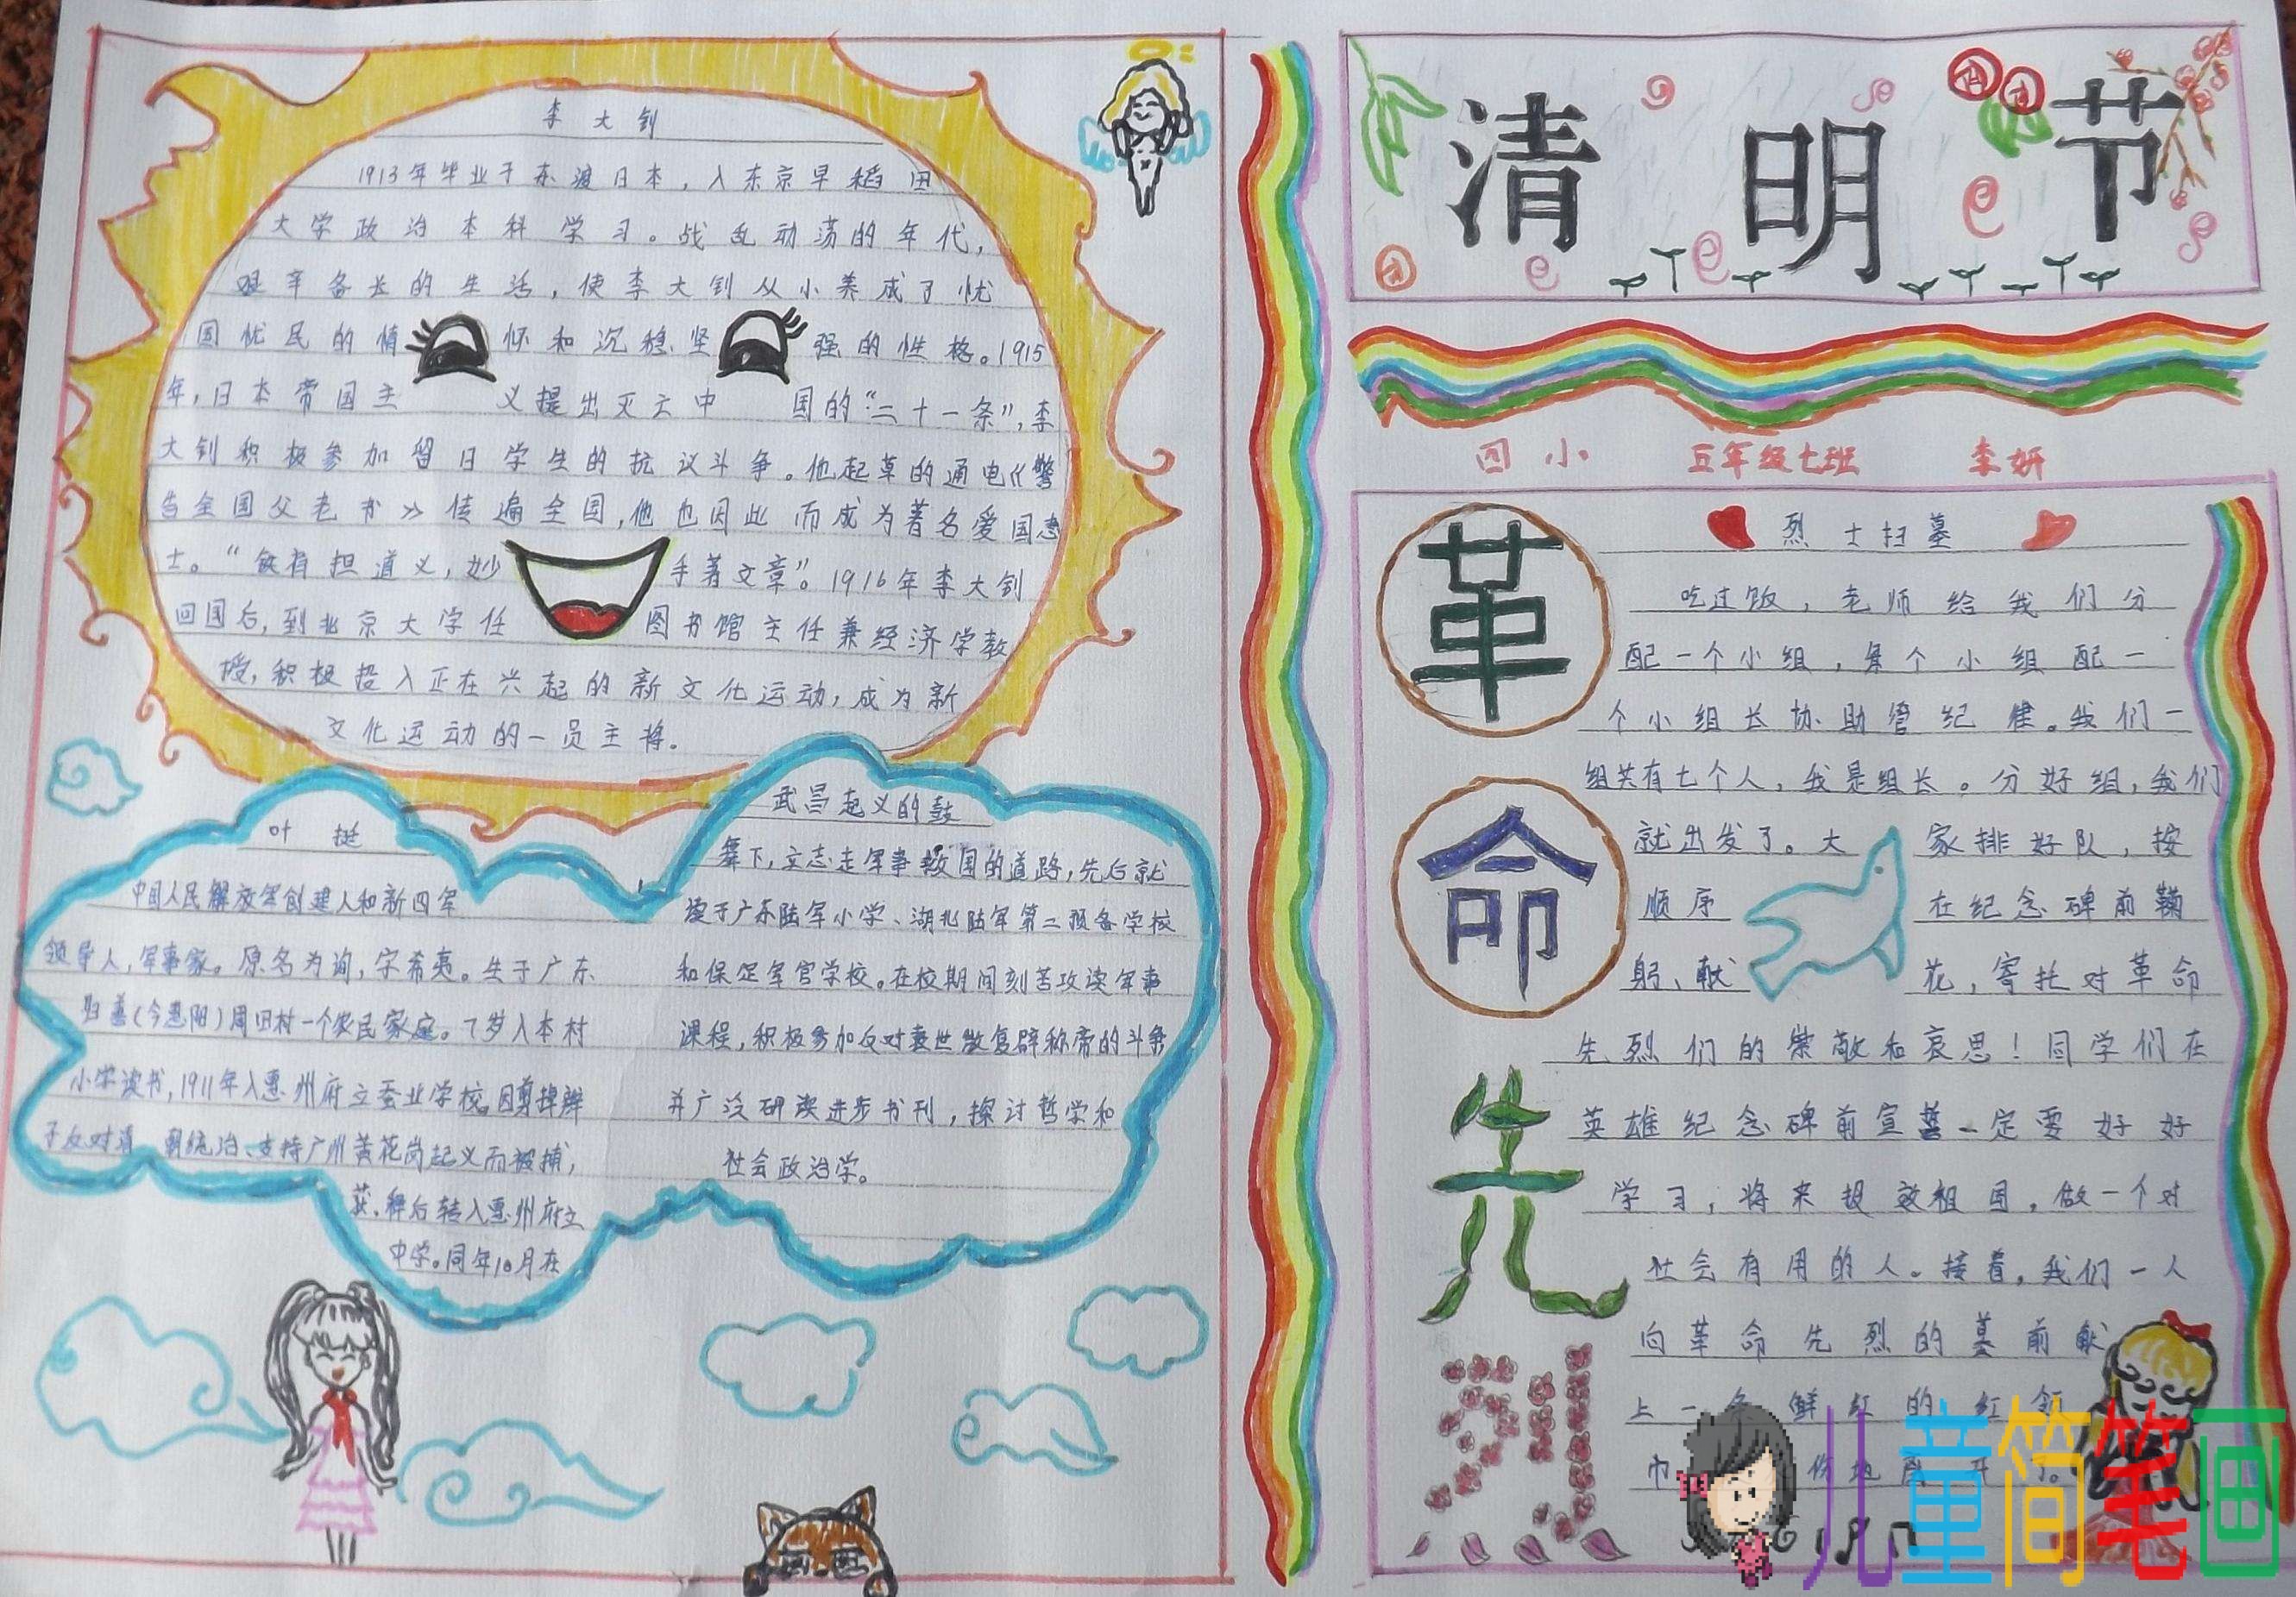 李大钊
1913年毕业于东渡日本，入东京早稻田
大学政治本科学习。战乱动荡的年代，
艰辛备长的生活，使李大钊从小养成了忧
国忧民的情怀和沉稳坚强的性格。1915
年，日本帝国主义提出灭亡中国的“二十一条”，李
大钊积极参加留日学生的抗议斗争。他起草的通电《警
告全国父老书》传遍全国，他也因此而成为著名爱国志
士。“铁肩担道义，妙手著文章”。1916年李大钊
回国后，到北京大学任图书馆主任兼经济学教
授，积极投入正在兴起的新文化运动，成为新
文化运动的一员主将。
叶挺
中国人民解放军创建人和新四军
领导人，军事家。原名为询，字希夷。生于广东
归善（今惠阳）周田村一个农民家庭。7岁入本村
小学读书，1911年入惠州府立蚕业学校。因剪掉辫
子反对清朝统治、支持广州黄花岗起义而被捕，
获释后转入惠州府立
中学。同年10月在
武昌起义的鼓
舞下，立志走军事救国的道路，先后就
读于广东陆军小学、湖北陆军第二预备学校
和保定军官学校。在校期间刻苦攻读军事
课程，积极参加反对袁世凯复辟称帝的斗争
并广泛研读进步书刊，探讨哲学和
社会政治学。
清明节
回小 五年级七班 李妍
革命先烈
烈士扫墓
吃过饭，老师给我们分
配一个小组，每个小组配一
个小组长协助管纪律。我们一
组共有七个人，我是组长。分好组，我们
就出发了。大家排好队，按
顺序在纪念碑前鞠
躬、献花，寄托对革命
先烈们的崇敬和哀思！同学们在
英雄纪念碑前宣誓一定要好好
学习，将来报效祖国，做一个对
社会有用的人。接着，我们一人
向革命先烈的墓前献
上一条鲜红的红领
巾
儿童简笔画